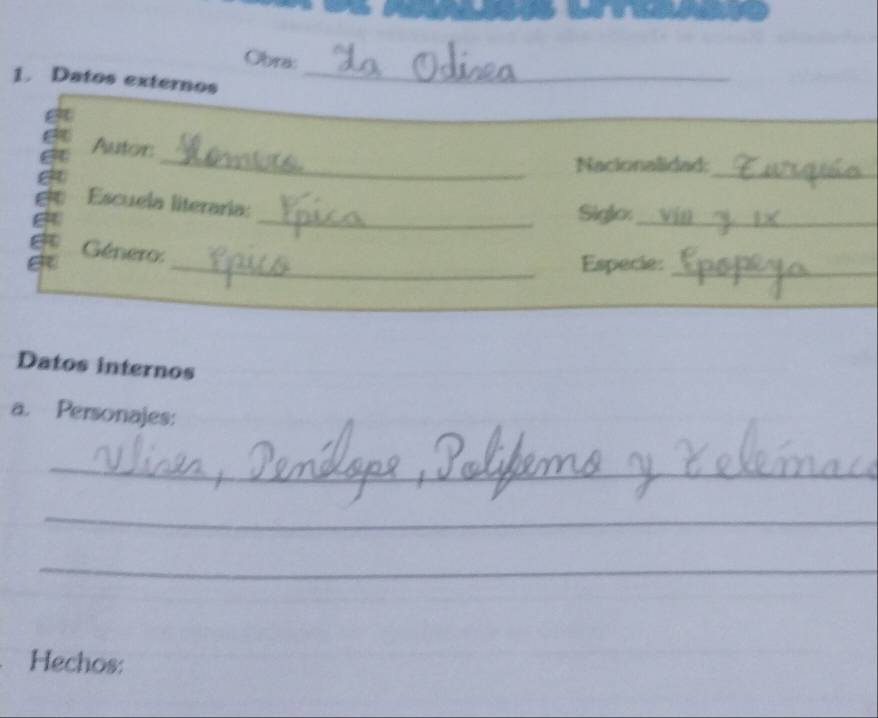 DE ANÁLISIS LITERARIO
Obra: La Odisea
1. Datos externos
Autor: Homero
Nacionalidad: Turquía
Escuela literaria: Épica
Siglo: VIII y IX
Género: Épico
Especie: Epopeya
Datos internos
a. Personajes:
Ulises, Penélope, Polifemo y Telémaco
Hechos: